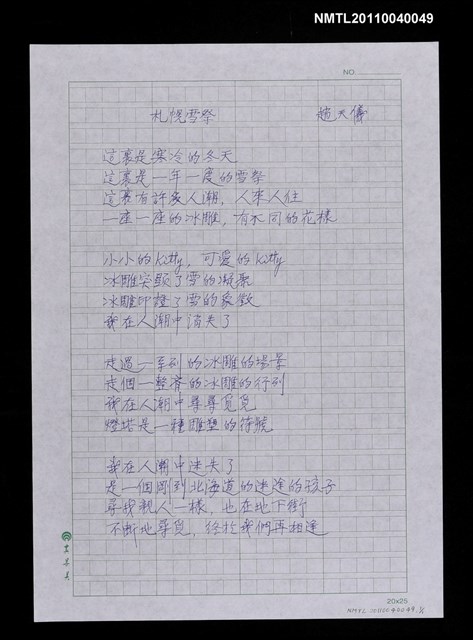 NMTL20110040049
NO.
札幌雪祭 趙天儀
這裏是寒冷的冬天
這裏是一年一度的雪祭
這裏有許多人潮，人來人往
一座一座的冰雕，有不同的花樣
小小的Kitty，可愛的Kitty
冰雕突顯了雪的凝聚
冰雕印證了雪的象徵
我在人潮中消失了
走過一系列的冰雕的場景
走個一整齊的冰雕的行列
我在人潮中尋尋覓覓
燈塔是一種雕塑的符號
我在人潮中迷失了
是一個剛到北海道的迷途的孩子
尋找親人一樣，也在地下街
不斷地尋覓，終於我們再相逢
20x25